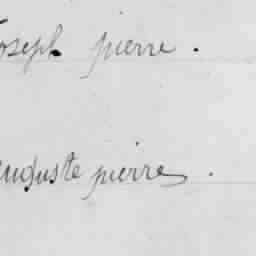 Joseph pierre.
auguste pierre.